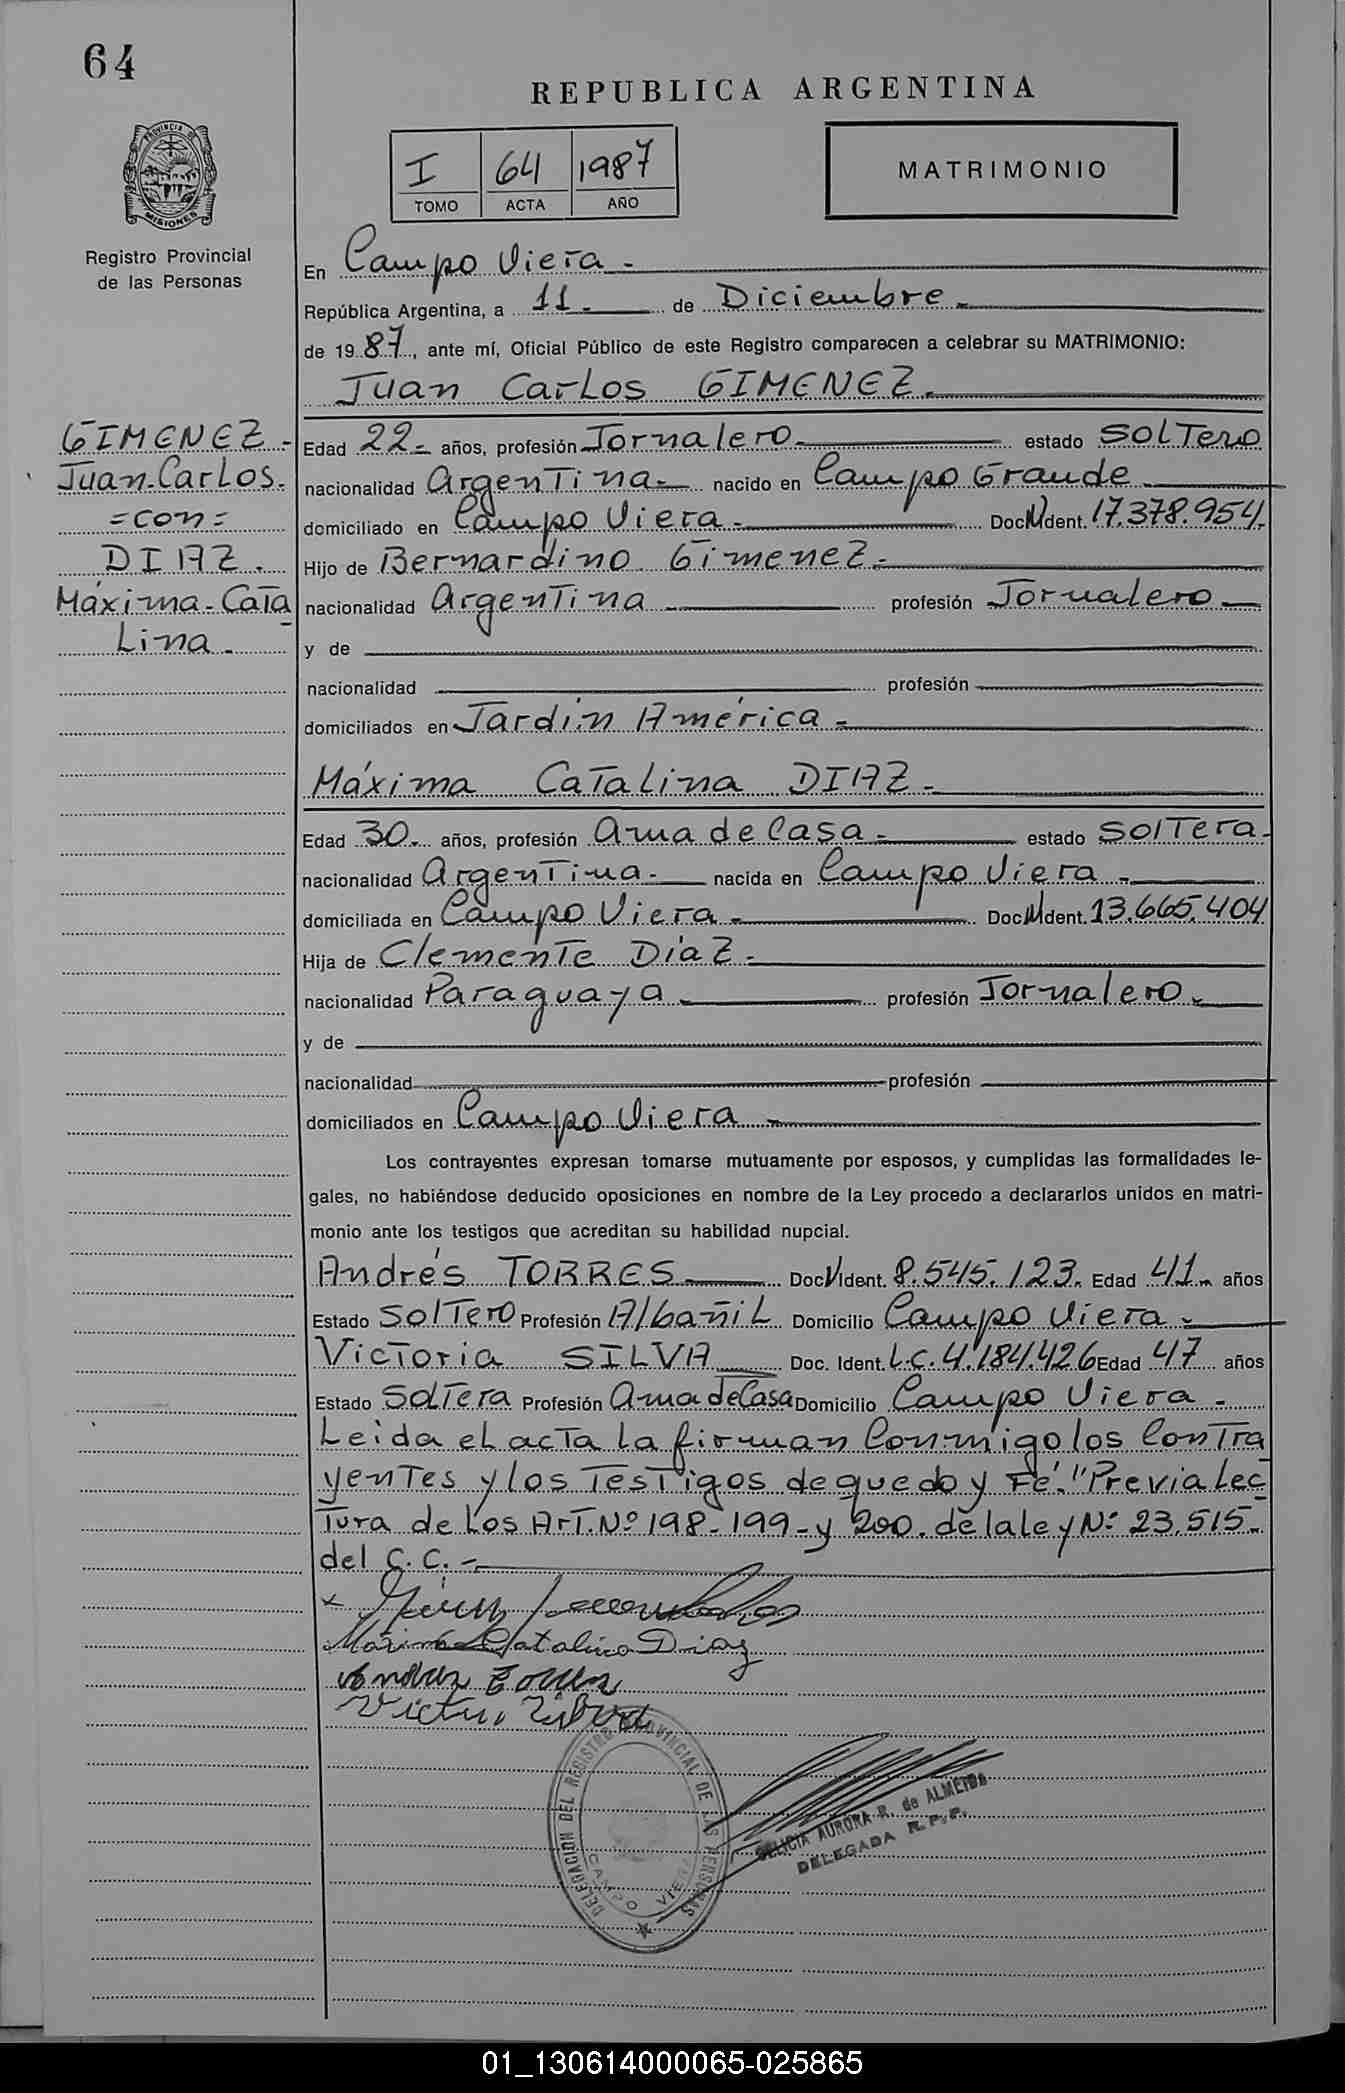 64
REPUBLICA ARGENTINA
PROVINCIA DE
MISIONES
I 64 1987
TOMO ACTA AÑO
MATRIMONIO
Registro Provincial
de las Personas
En Campo Viera -
República Argentina, a 11 - de Diciembre -
de 1987, ante mí, Oficial Público de este Registro comparecen a celebrar su MATRIMONIO:
Juan Carlos GIMENEZ -
GIMENEZ -
Juan-Carlos.
=con=
DIAZ.
Máxima-Cata
Lina -
Edad 22 - años, profesión Jornalero - estado SOLTero
nacionalidad ArgenTina - nacido en Campo Grande
domiciliado en Campo Viera - Doc N Ident. 17.378.954.
Hijo de Bernardino Gimenez -
nacionalidad ArgenTina profesión Jornalero -
y de
nacionalidad profesión
domiciliados en Jardín América -
Máxima CaTalina DIAZ -
Edad 30 - años, profesión Ama de Casa - estado SolTera -
nacionalidad ArgenTina - nacida en Campo Viera -
domiciliada en Campo Viera - Doc N Ident. 13.665.404
Hija de ClemenTe Díaz -
nacionalidad Paraguaya - profesión Jornalero -
y de
nacionalidad profesión
domiciliados en Campo Viera -
Los contrayentes expresan tomarse mutuamente por esposos, y cumplidas las formalidades le-
gales, no habiéndose deducido oposiciones en nombre de la Ley procedo a declararlos unidos en matri-
monio ante los testigos que acreditan su habilidad nupcial.
Andrés TORRES Doc N Ident. 8.545.123. Edad 41 - años
Estado SolTero Profesión Albañil Domicilio Campo Viera -
VicToria SILVA Doc. Ident. L.C. 4.184.426 Edad 47 años
Estado SolTera Profesión Ama de Casa Domicilio Campo Viera -
Leida el acTa la firman Conmigo los ConTra
yenTes y los TesTigos de que doy Fé. "Previa Lec
Tura de Los ArT. Nº 198-199-y 200. de la ley Nº 23.515-
del C.C. -
x
Máxima Catalina Diaz
DELEGACION DEL REGISTRO PROVINCIAL DE LAS PERSONAS
CAMPO VIERA
AURORA R. de ALMEIDA
DELEGADA R.P.P.
01_130614000065-025865